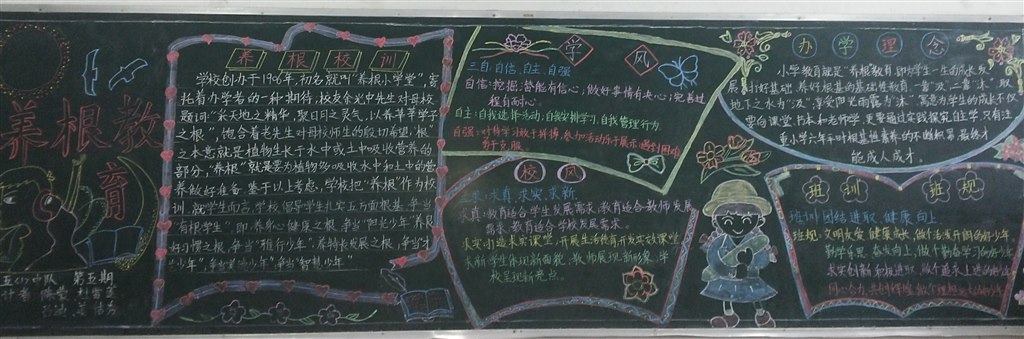 养根教
育
五(1)中队 第五期
养根校训
学校创办于1906年,初名就叫"养根小学堂",寄
托着办学者的一种期待,校友余光中先生对母校
题词:"采天地之精华,聚日月之灵气,以养莘莘学子
之根",饱含着老先生对母校师生的殷切希望,"根"
之本意就是植物生长于水中或土中吸收营养的
部分,"养根"就是要为植物多吸收水中和土中的营
养做好准备 基于以上考虑,学校把"养根"作为校
训,就学生而言,学校倡导学生扎实五方面根基,争当
"有根学生",即:养身心健康之根,争当"阳光少年"养良
好习惯之根,争当"雅行少年",养特长发展之根,争当"才
少年",争当"智慧少年"
学风
三自:自信,自主,自强
自信:挖掘潜能有信心,做好事情有决心,完善过
程有耐心。
自主:自我选择活动,自我实习学习,自我管理行为
自强:对待学习敢于拼搏,参加活动乐于展示,遇到困难
勇于克服
校风
三求:求真,求实,求新
求真:教育适合学生发展需求,教育适合教师发展
需求,教育适合学校发展需求。
求实:创造求实课堂,开展生活教育开发实效课堂
求新:学生体现新面貌,教师展现新形象,学
校呈现新亮点。
办学理念
小学教育就是"养根"教育,即为学生一生的成长发
展打好基础,养好根基的基础性教育,一音"汲",二音"沐",取
地下之水为"汲",享受阳光雨露为"沐",寓意为学生的成长不仅
要向课堂,书本和老师学,更要通过实践探究,自主学,只有注
重小学六年对根基性营养的不断积累,最终才
能成人成才。
班训 班规
班训:团结 进取 健康 向上
班规:文明友爱,健康成长,做个活泼开朗的好少年
勤学乐思,奋发向上,做个勤奋学习的好少年